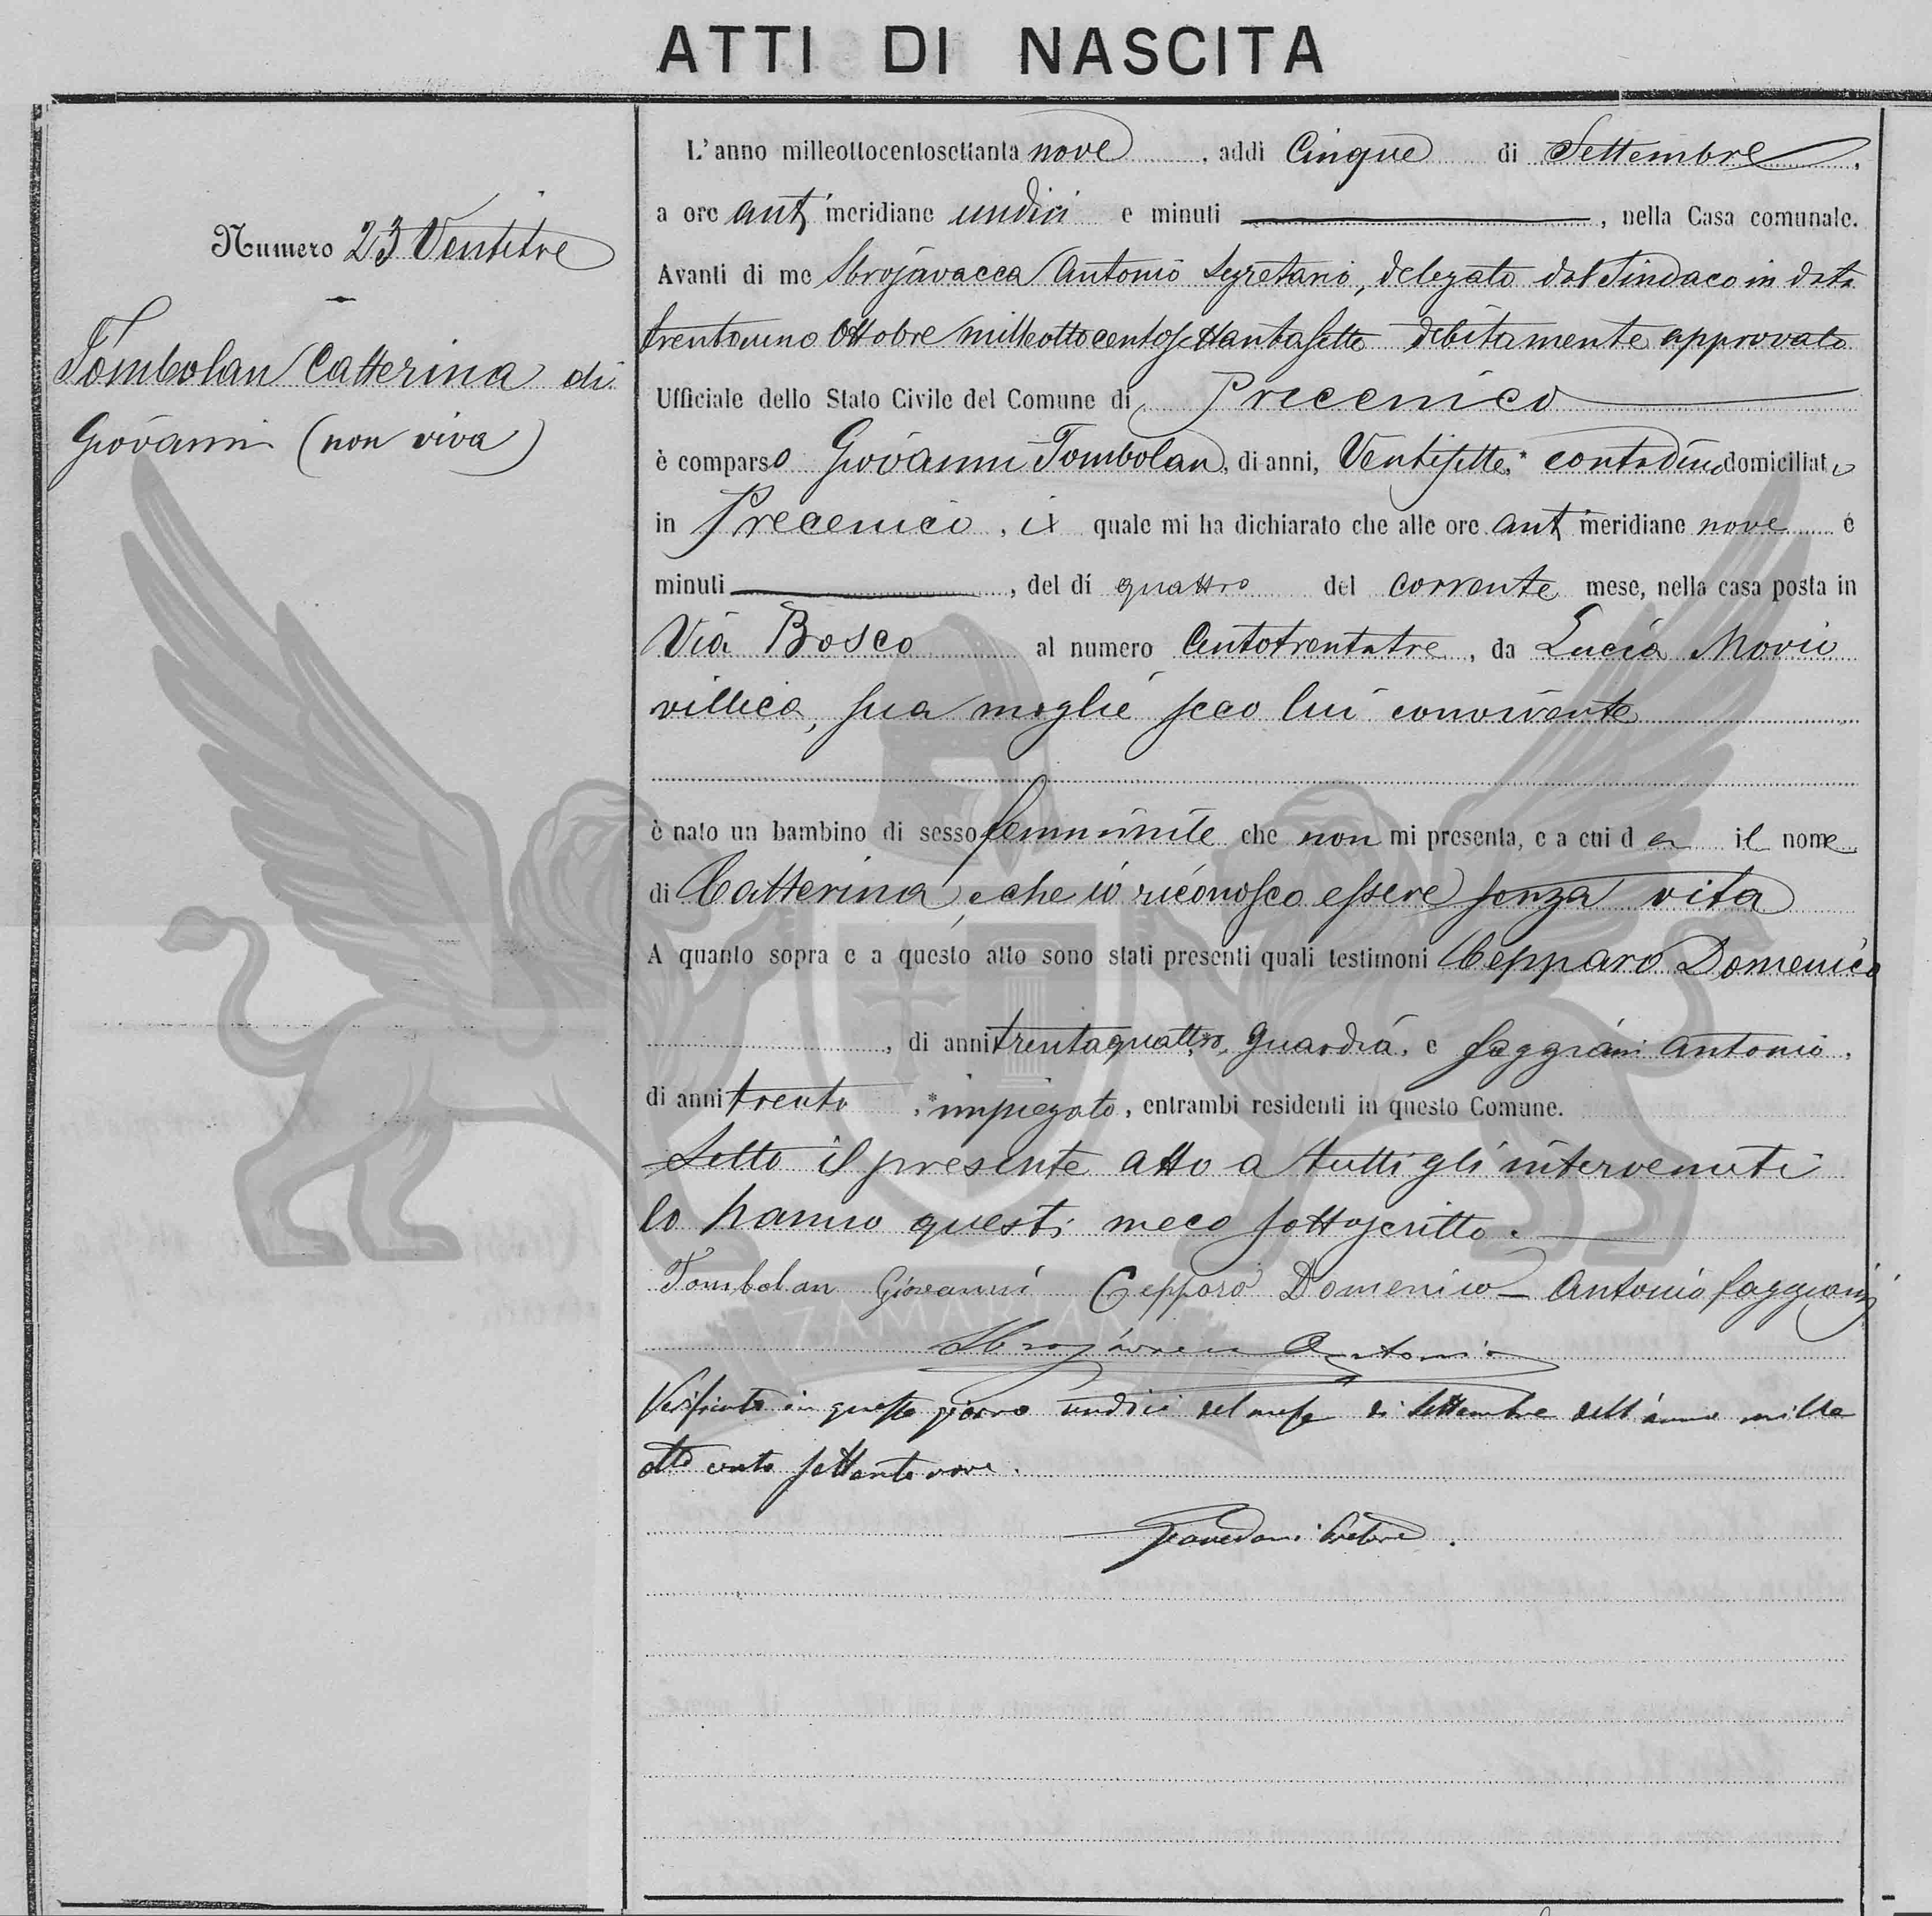 ATTI DI NASCITA
Numero 23 Ventitre
Tombolan Catterina di
Giovanni (non viva)
L'anno milleottocentosettanta nove, addì Cinque di Settembre,
a ore ant meridiane undici e minuti, nella Casa comunale.
Avanti di me Sbrojavacca Antonio Segretario, delegato dal Sindaco in data
trentauno Ottobre milleottocentosettantasette debitamente approvato
Ufficiale dello Stato Civile del Comune di Precenico
è comparso Giovanni Tombolan, di anni, Ventisette,* contadino domiciliato
in Precenico, il quale mi ha dichiarato che alle ore ant meridiane nove e
minuti, del dí quattro del corrente mese, nella casa posta in
Via Bosco al numero Centotrentatre, da Lucia
villica, sua moglie seco lui convivente
è nato un bambino di sesso femminile che non mi presenta, e a cui dà il nome
di Catterina, e che io riconosco essere senza vita
A quanto sopra e a questo atto sono stati presenti quali testimoni Cepparo Domenico
, di anni trentaquattro, Guardia, e Faggiani Antonio,
di anni trenta,* impiegato, entrambi residenti in questo Comune.
Letto il presente atto a tutti gli intervenuti
lo hanno questi meco sottoscritto.
Tombolan Giovanni Cepparo Domenico - Antonio Faggiani
Sbrojavacca Antonio
ZAMARIAN
Verificato in questo giorno undici del mese di Settembre dell'anno mille
otto cento settanta nove.
Pretore.